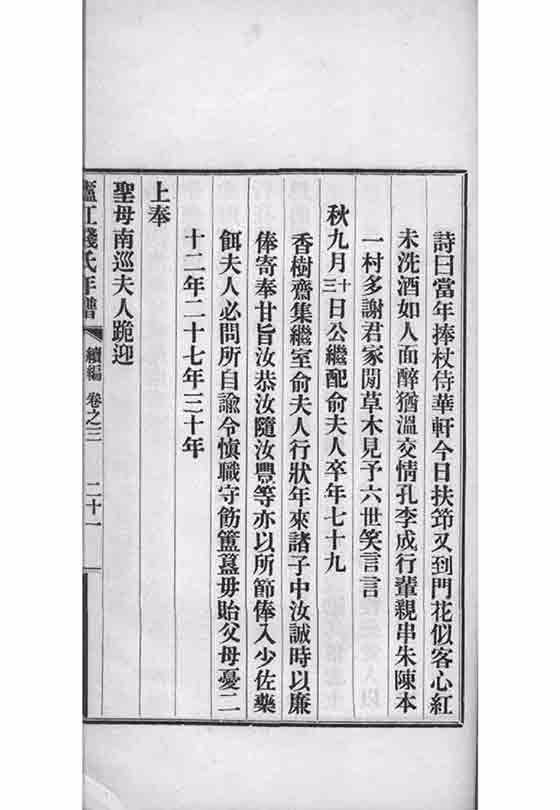 詩曰當年捧杖侍華軒今日扶筇又到門花似客心紅
未洗酒如人面醉猶溫交情孔李成行輩親串朱陳本
一村多謝君家閒草木見予六世笑言言
秋九月三十日公繼配俞夫人卒年七十九
香樹齋集繼室俞夫人行狀年來諸子中汝誠時以廉
俸寄奉甘旨汝恭汝隨汝豐等亦以所節俸入少佐藥
餌夫人必問所自諭令愼職守飭簠簋毋貽父母憂二
十二年二十七年三十年
上奉
聖母南巡夫人跪迎
廬江錢氏年譜 續編 卷之三 二十一